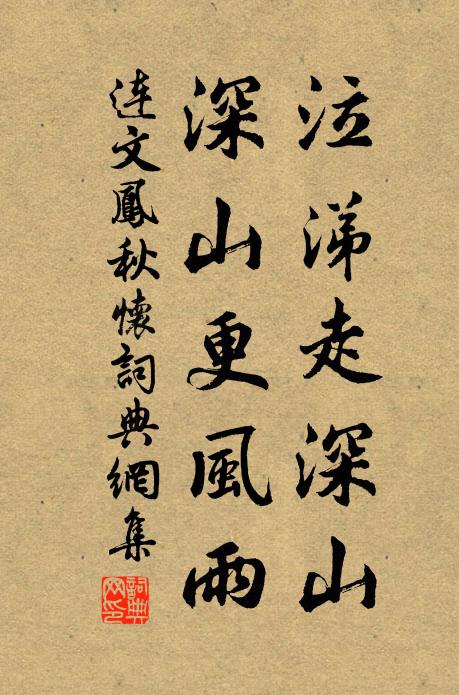 泣涕走深山
深山更風雨
連文鳳秋懷詞典網集
詞典
网印